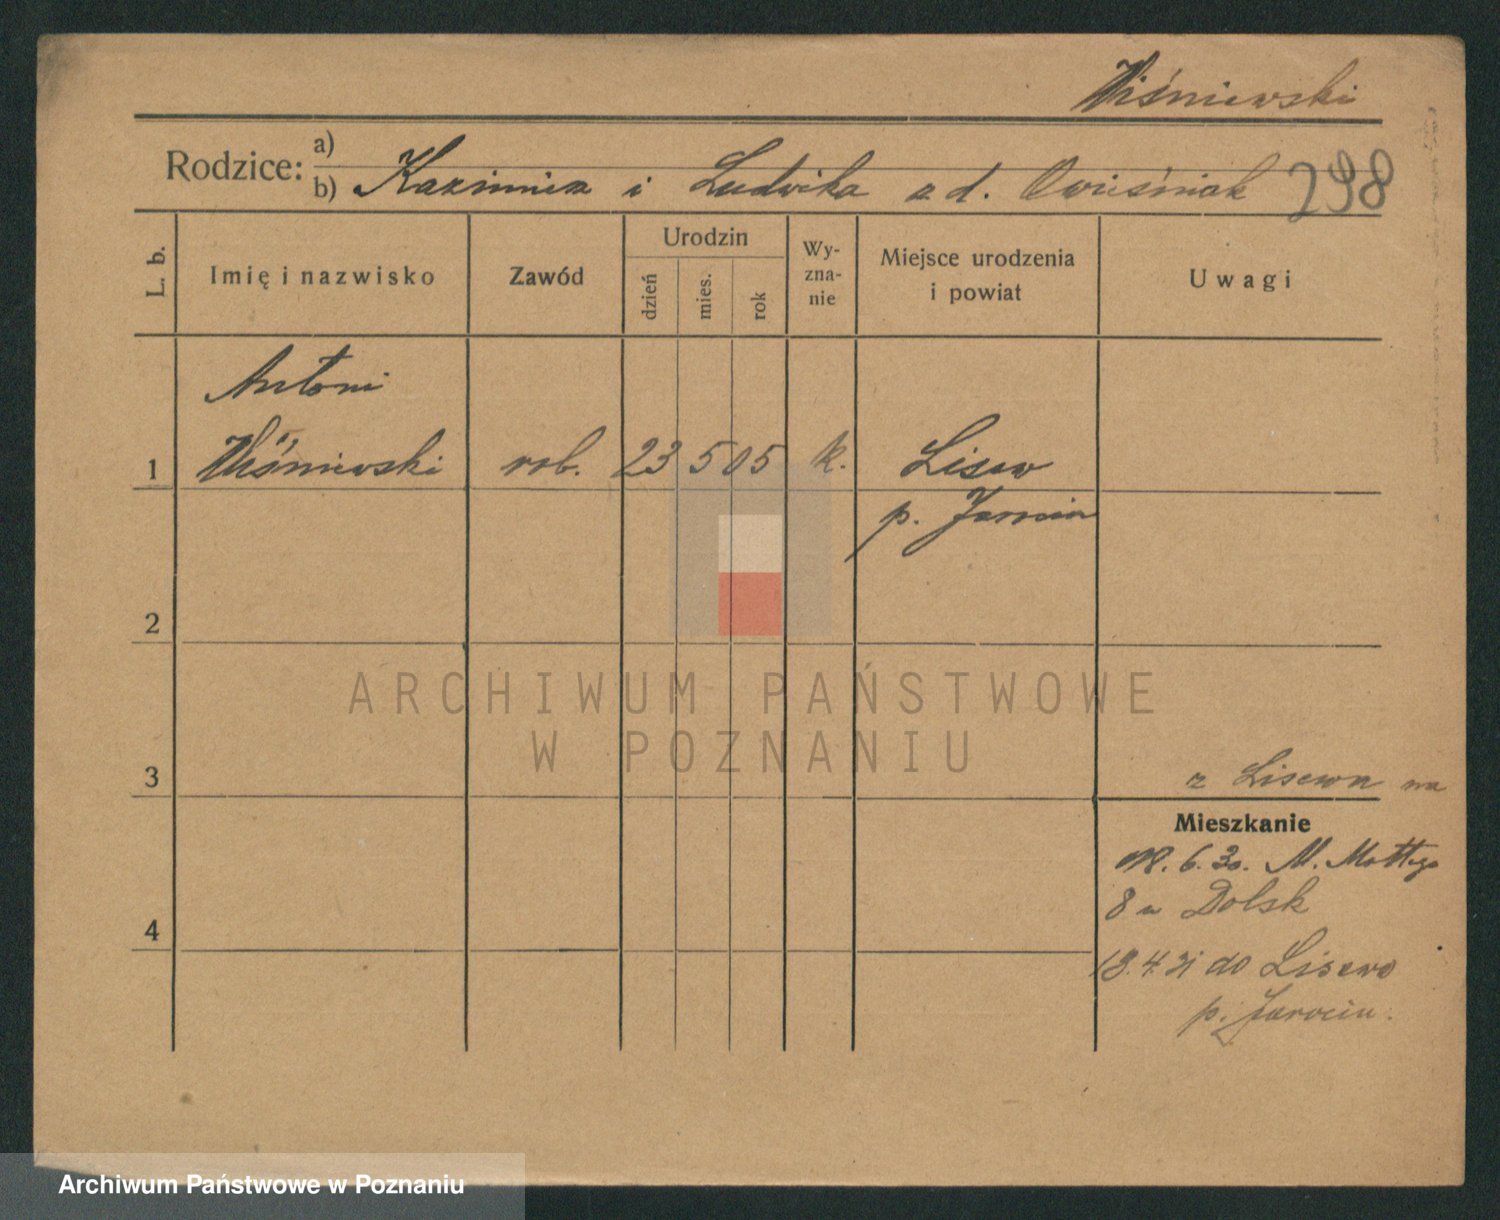 Wiśniewski
Rodzice: a)
b) Kazimierz i Ludwika z d. Owieśniak 298
L. b.
Imię i nazwisko
Zawód
Urodzin
dzień
mies.
rok
Wy-
zna-
nie
Miejsce urodzenia
i powiat
Uwagi
Antoni
1 Wiśniewski rob. 23 5 05 k. Lisew
p. Jarocin
2
ARCHIWUM PAŃSTWOWE
W POZNANIU
3
z Lisewa na
Mieszkanie
6. 30. M. Mottego
8 u Dolsk
4
18.4.31 do Lisewo
p. Jarocin.
Archiwum Państwowe w Poznaniu